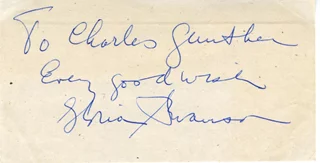 To Charles Gunther
Every good wish
Gloria Swanson